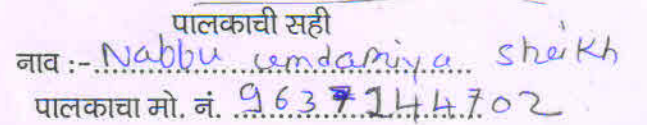 पालकाची सही
नाव :- Nabbu umdamiya sheikh
पालकाचा मो. नं. 9637144702